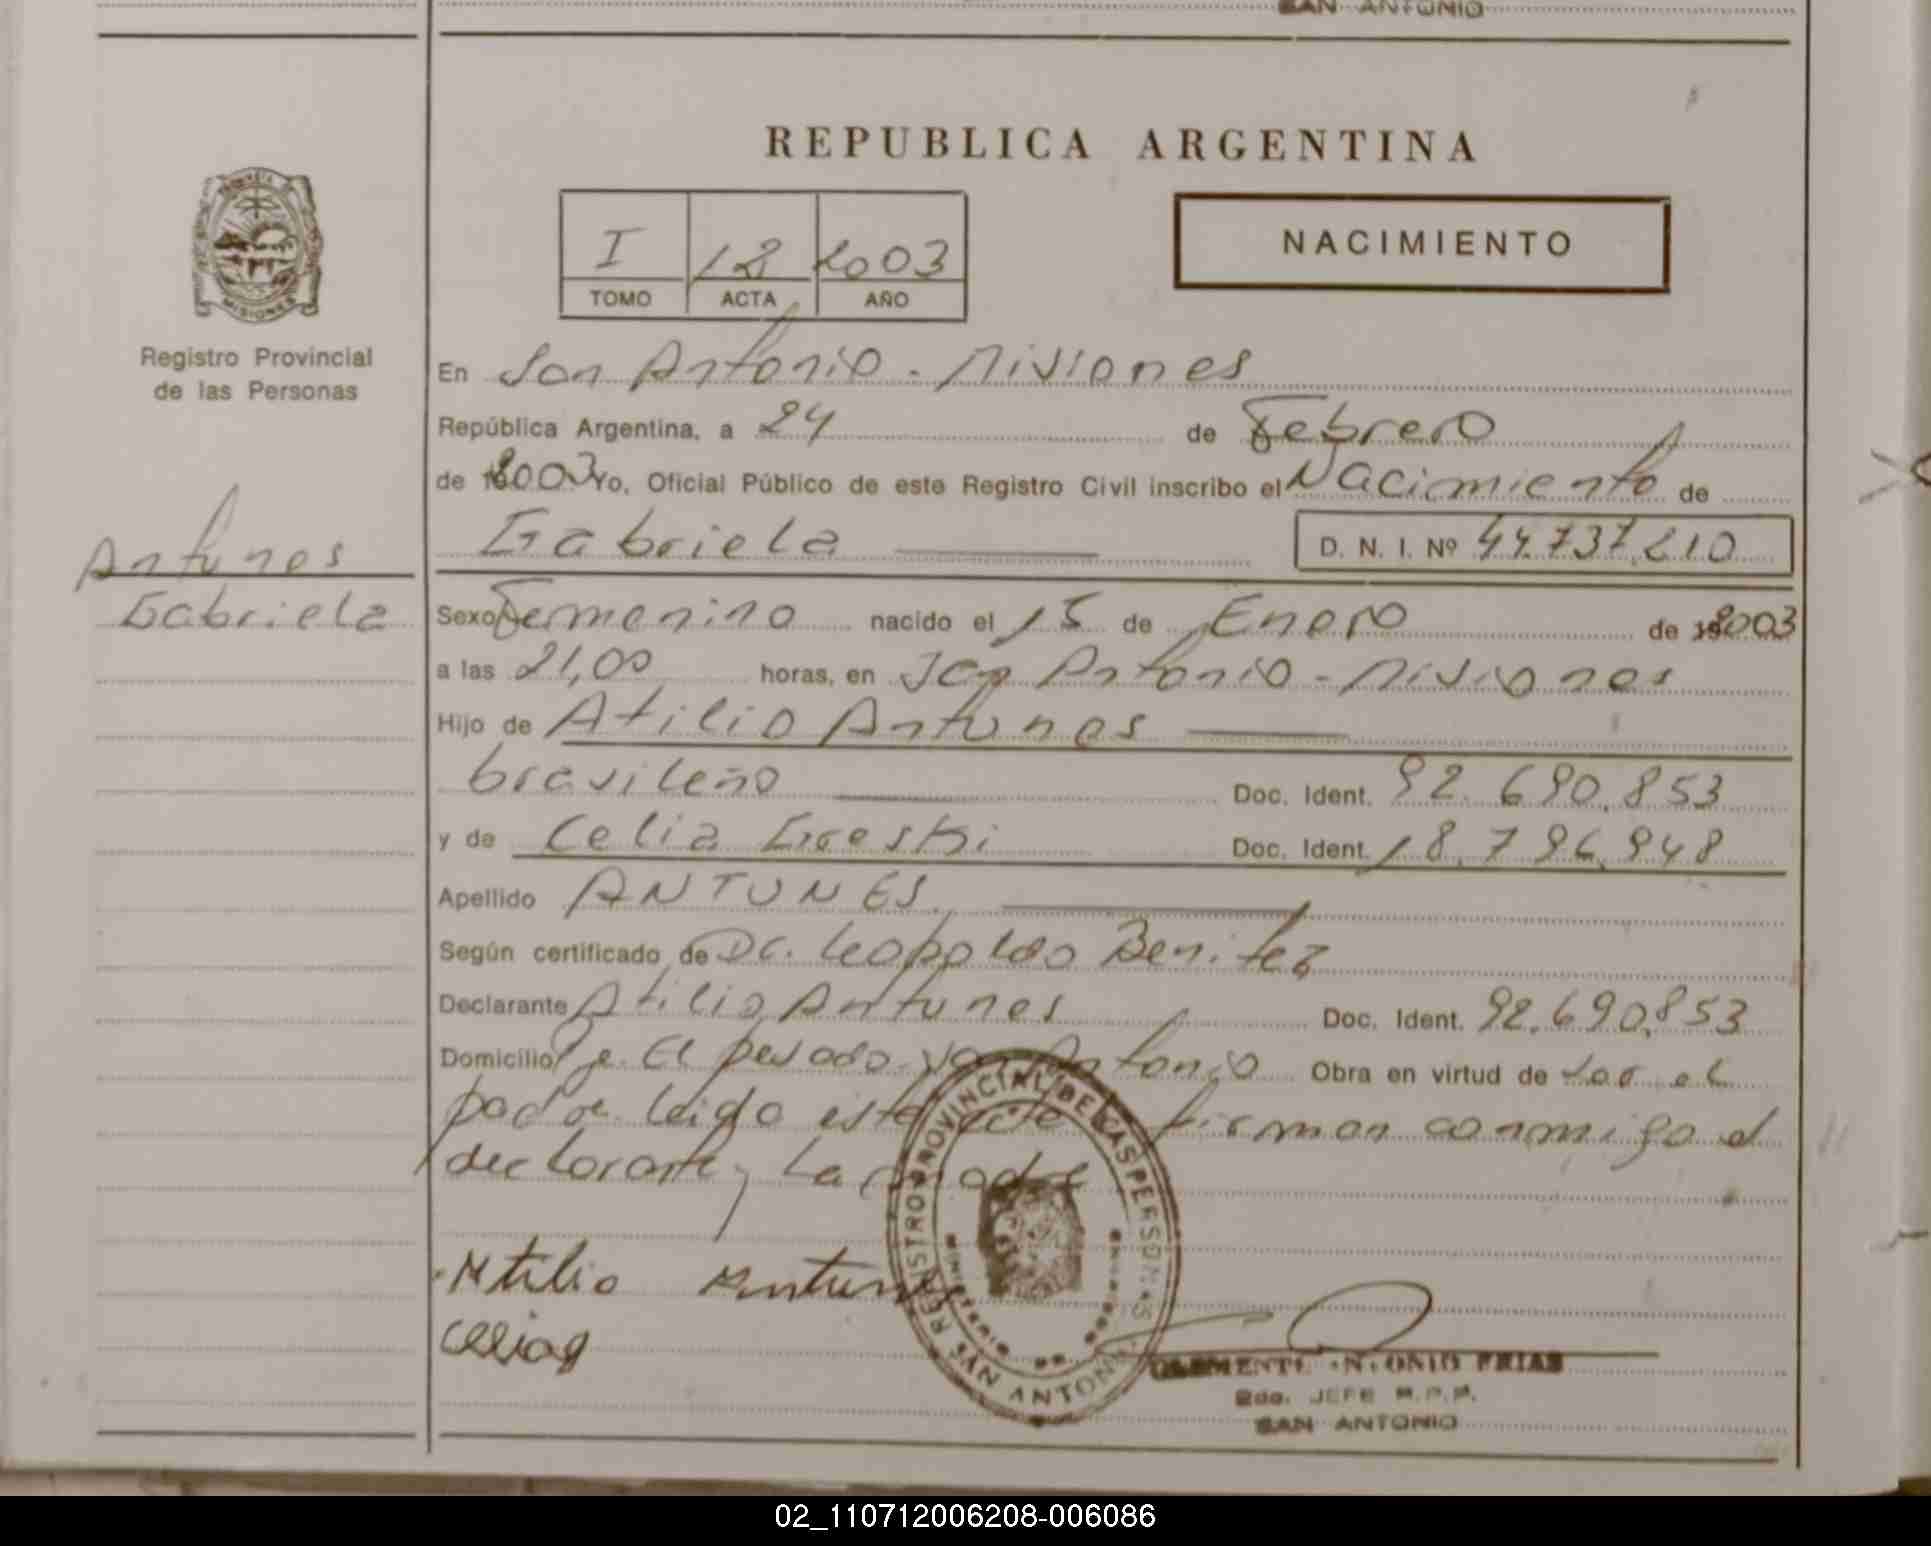 SAN ANTONIO
REPUBLICA ARGENTINA
I 12 2003
TOMO ACTA AÑO
NACIMIENTO
PROVINCIA DE
MISIONES
Registro Provincial
de las Personas
Antunes
Gabriela
En San Antonio - Misiones
República Argentina, a 24 de Febrero
de 2003 Yo, Oficial Público de este Registro Civil inscribo el Nacimiento de
Gabriela D. N. I. Nº 44.737.210
Sexo Femenino nacido el 15 de Enero de 2003
a las 21,00 horas, en San Antonio - Misiones
Hijo de Atilio Antunes
brasileño Doc. Ident. 92.690.853
y de Celia Doc. Ident. 18.796.948
Apellido ANTUNES
Según certificado de Dr. Leopoldo Benitez
Declarante Atilio Antunes Doc. Ident. 92.690.853
Domicilio Pje. El pesado San Antonio Obra en virtud de ser el
padre leida este acta firman conmigo el
declarante y la madre
Atilio Antunes
Celia
REGISTRO PROVINCIAL DE LAS PERSONAS
SAN ANTONIO
CLEMENTE ANTONIO FRIAS
2do. JEFE R.P.P.
SAN ANTONIO
02_110712006208-006086